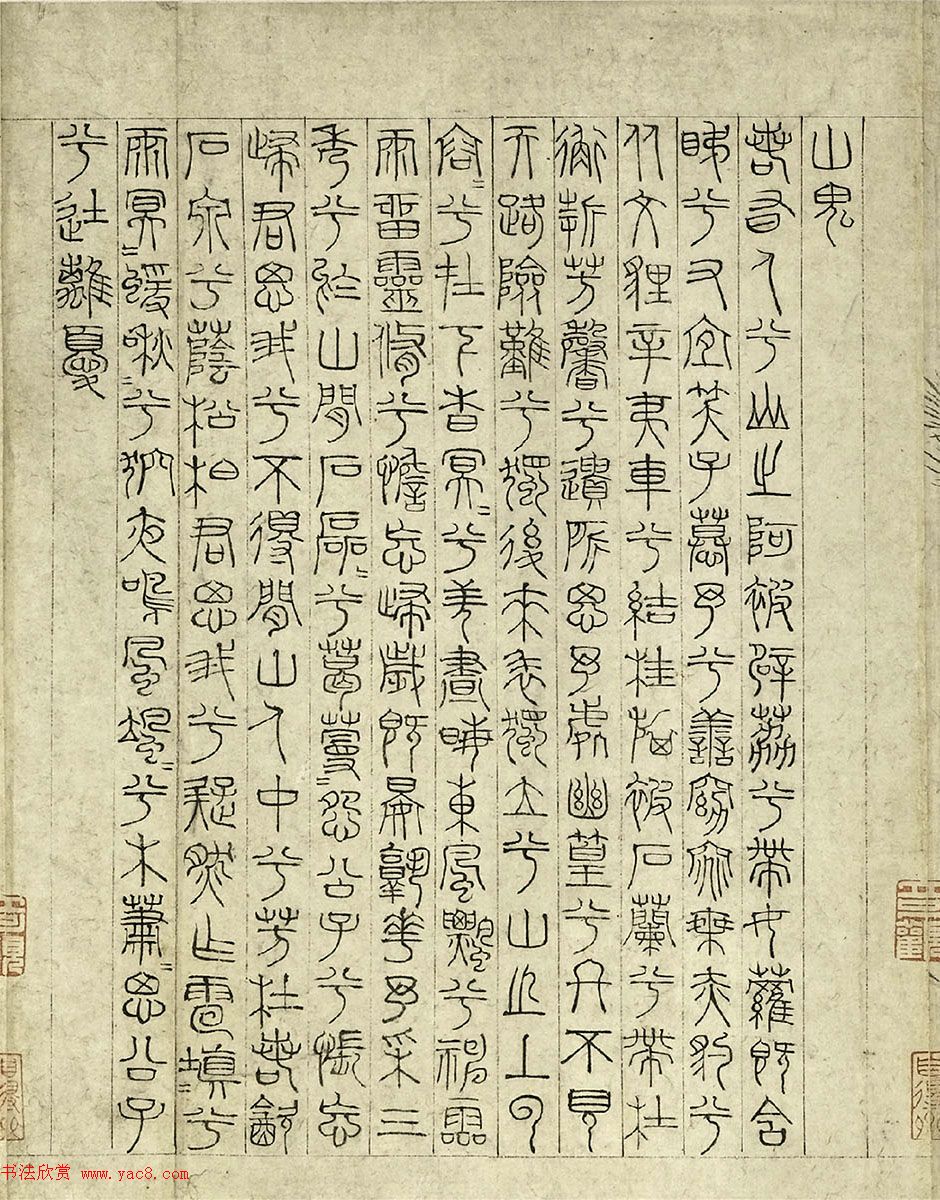 山鬼
若有人兮山之阿被薜荔兮帶女蘿既含
睇兮又宜笑子慕予兮善窈窕乘赤豹兮
从文貍辛夷車兮結桂旗被石蘭兮帶杜
衡折芳馨兮遺所思予處幽篁兮終不見
天路險難兮獨後來表獨立兮山之上云
容〻兮在下杳冥〻兮羌晝晦東風飄兮神靈
雨留靈脩兮憺忘歸歲既晏孰華予采三
秀兮於山間石磊〻兮葛蔓〻怨公子兮悵忘
歸君思我兮不得閒山人中兮芳杜若飲
石泉兮蔭松柏君思我兮疑然作雷填〻兮
雨冥〻猨啾〻兮狖夜鳴風颯〻兮木蕭〻思公子
兮徒離憂
书法欣赏 www.yac8.com